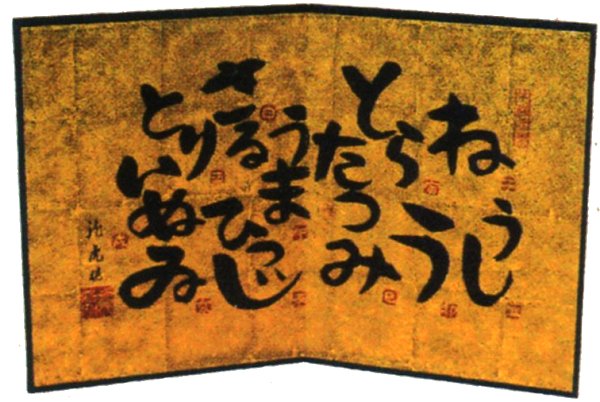 ね
うし
とら
う
たつみ
うま
ひつじ
さる
とり
いぬ
ゐ